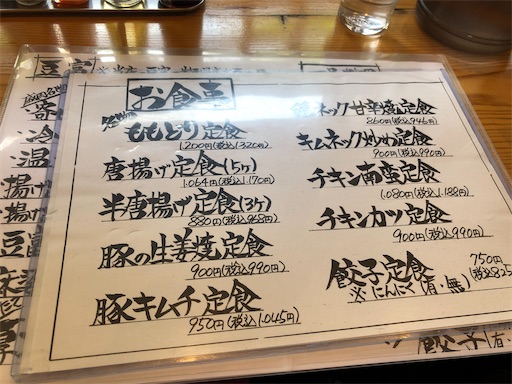 お食事
名物 ももとり定食
1.200円(税込1.320円)
唐揚げ定食(5ヶ)
1.064円(税込1.170円)
半唐揚げ定食(3ヶ)
880円(税込968円)
豚の生姜焼定食
900円(税込990円)
豚キムチ定食
950円(税込1.045円)
ネック甘辛焼定食
860円(税込946円)
キムネック炒め定食
900円(税込990円)
チキン南蛮定食
1.080円(税込1.188円)
チキンカツ定食
900円(税込990円)
餃子定食
750円
(税込825
※にんにく(有・無)
豆富
冷
温
揚げ
揚げ
豆富
餃子(有・